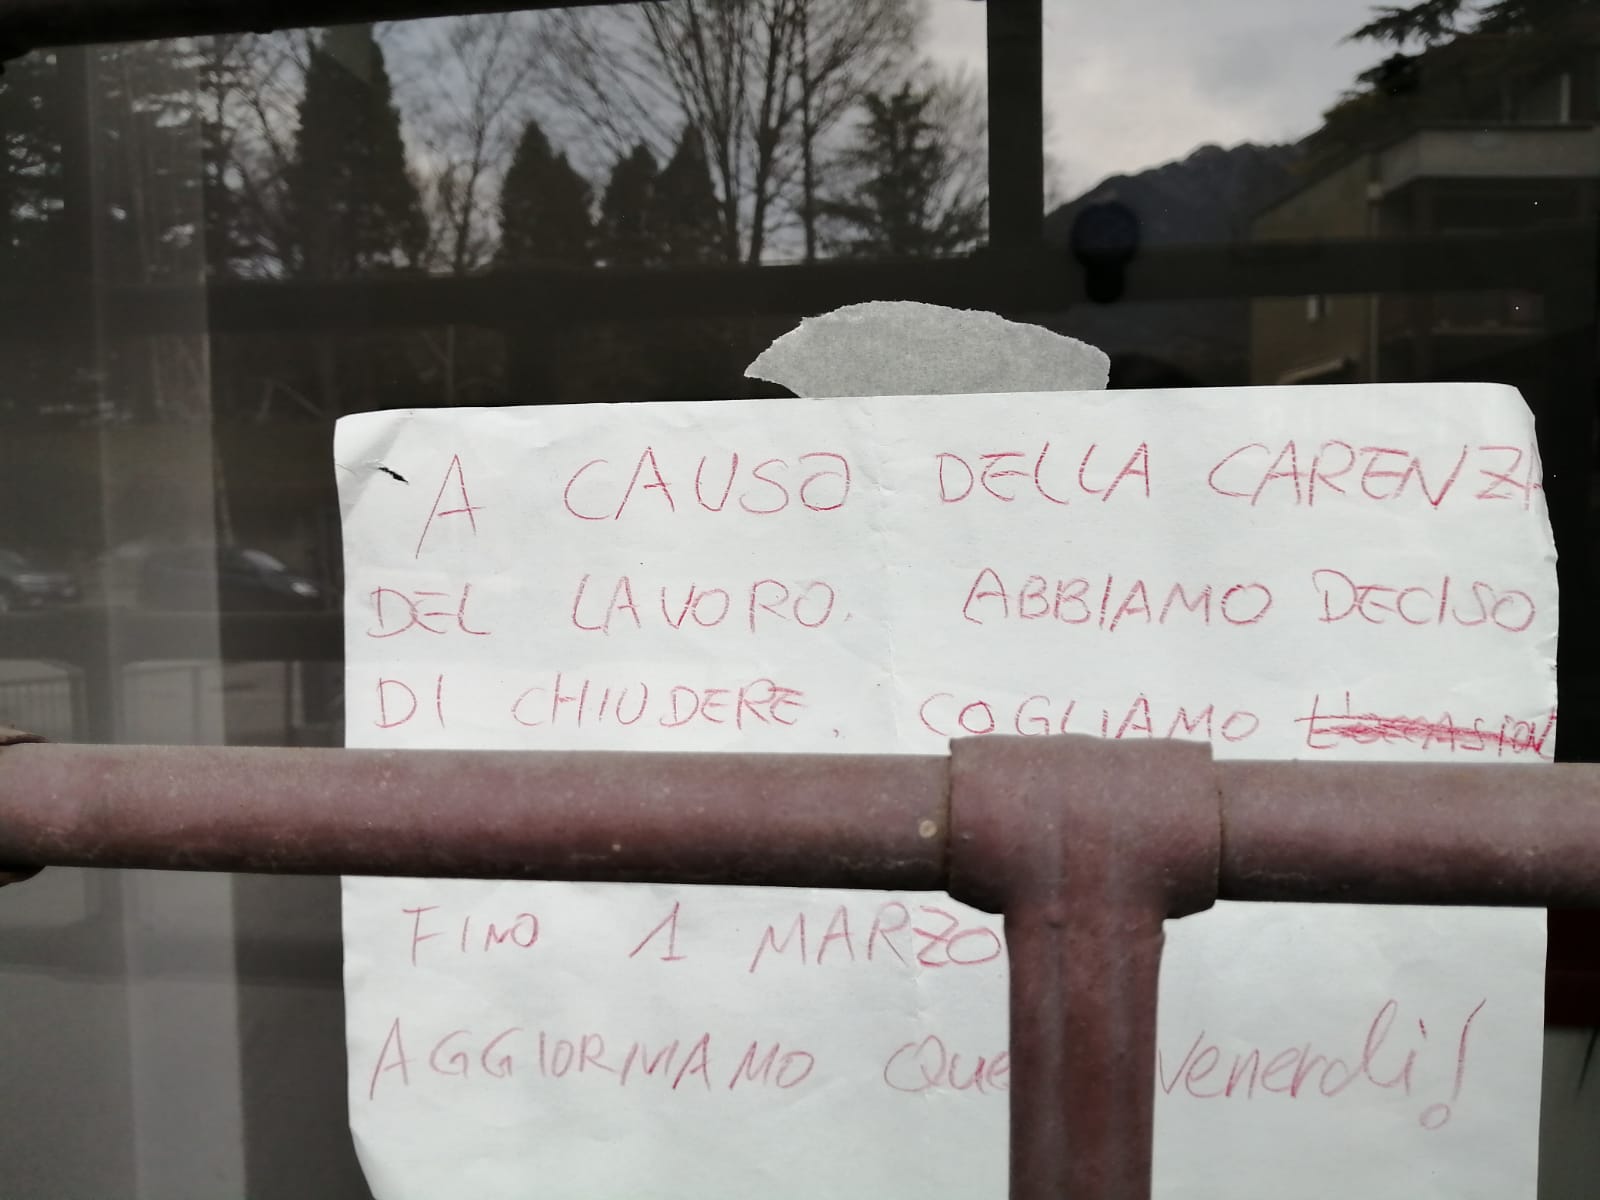 A CAUSA DELLA CARENZA
DEL LAVORO. ABBIAMO DECISO
DI CHIUDERE. COGLIAMO
FINO 1 MARZO
AGGIORNIAMO venerdi!